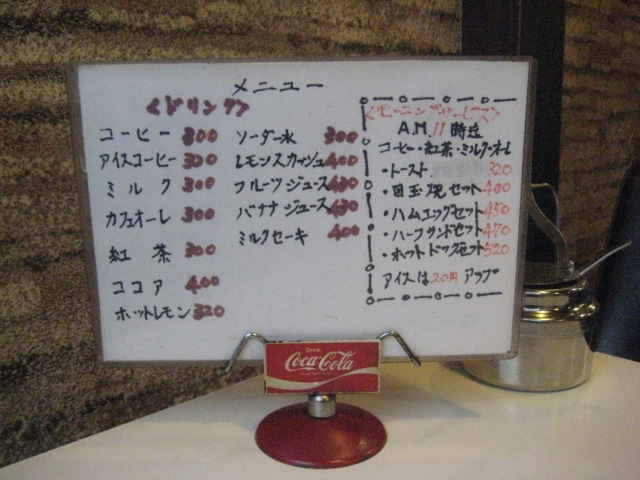 メニュー
<ドリンク>
コーヒー 300
アイスコーヒー 320
ミルク 300
カフェオーレ 300
紅茶 300
ココア 400
ホットレモン 320
ソーダー水 300
レモンスカッシュ 400
フルーツジュース
バナナジュース
ミルクセーキ 400
<モーニングサービス>
A.M.11時迄
コーヒー・紅茶・ミルク・オーレ
・トースト 320
・目玉焼セット 400
・ハムエッグセット 450
・ハーフサンドセット 470
・ホットドックセット 520
アイスは20円アップ
Drink
Coca-Cola